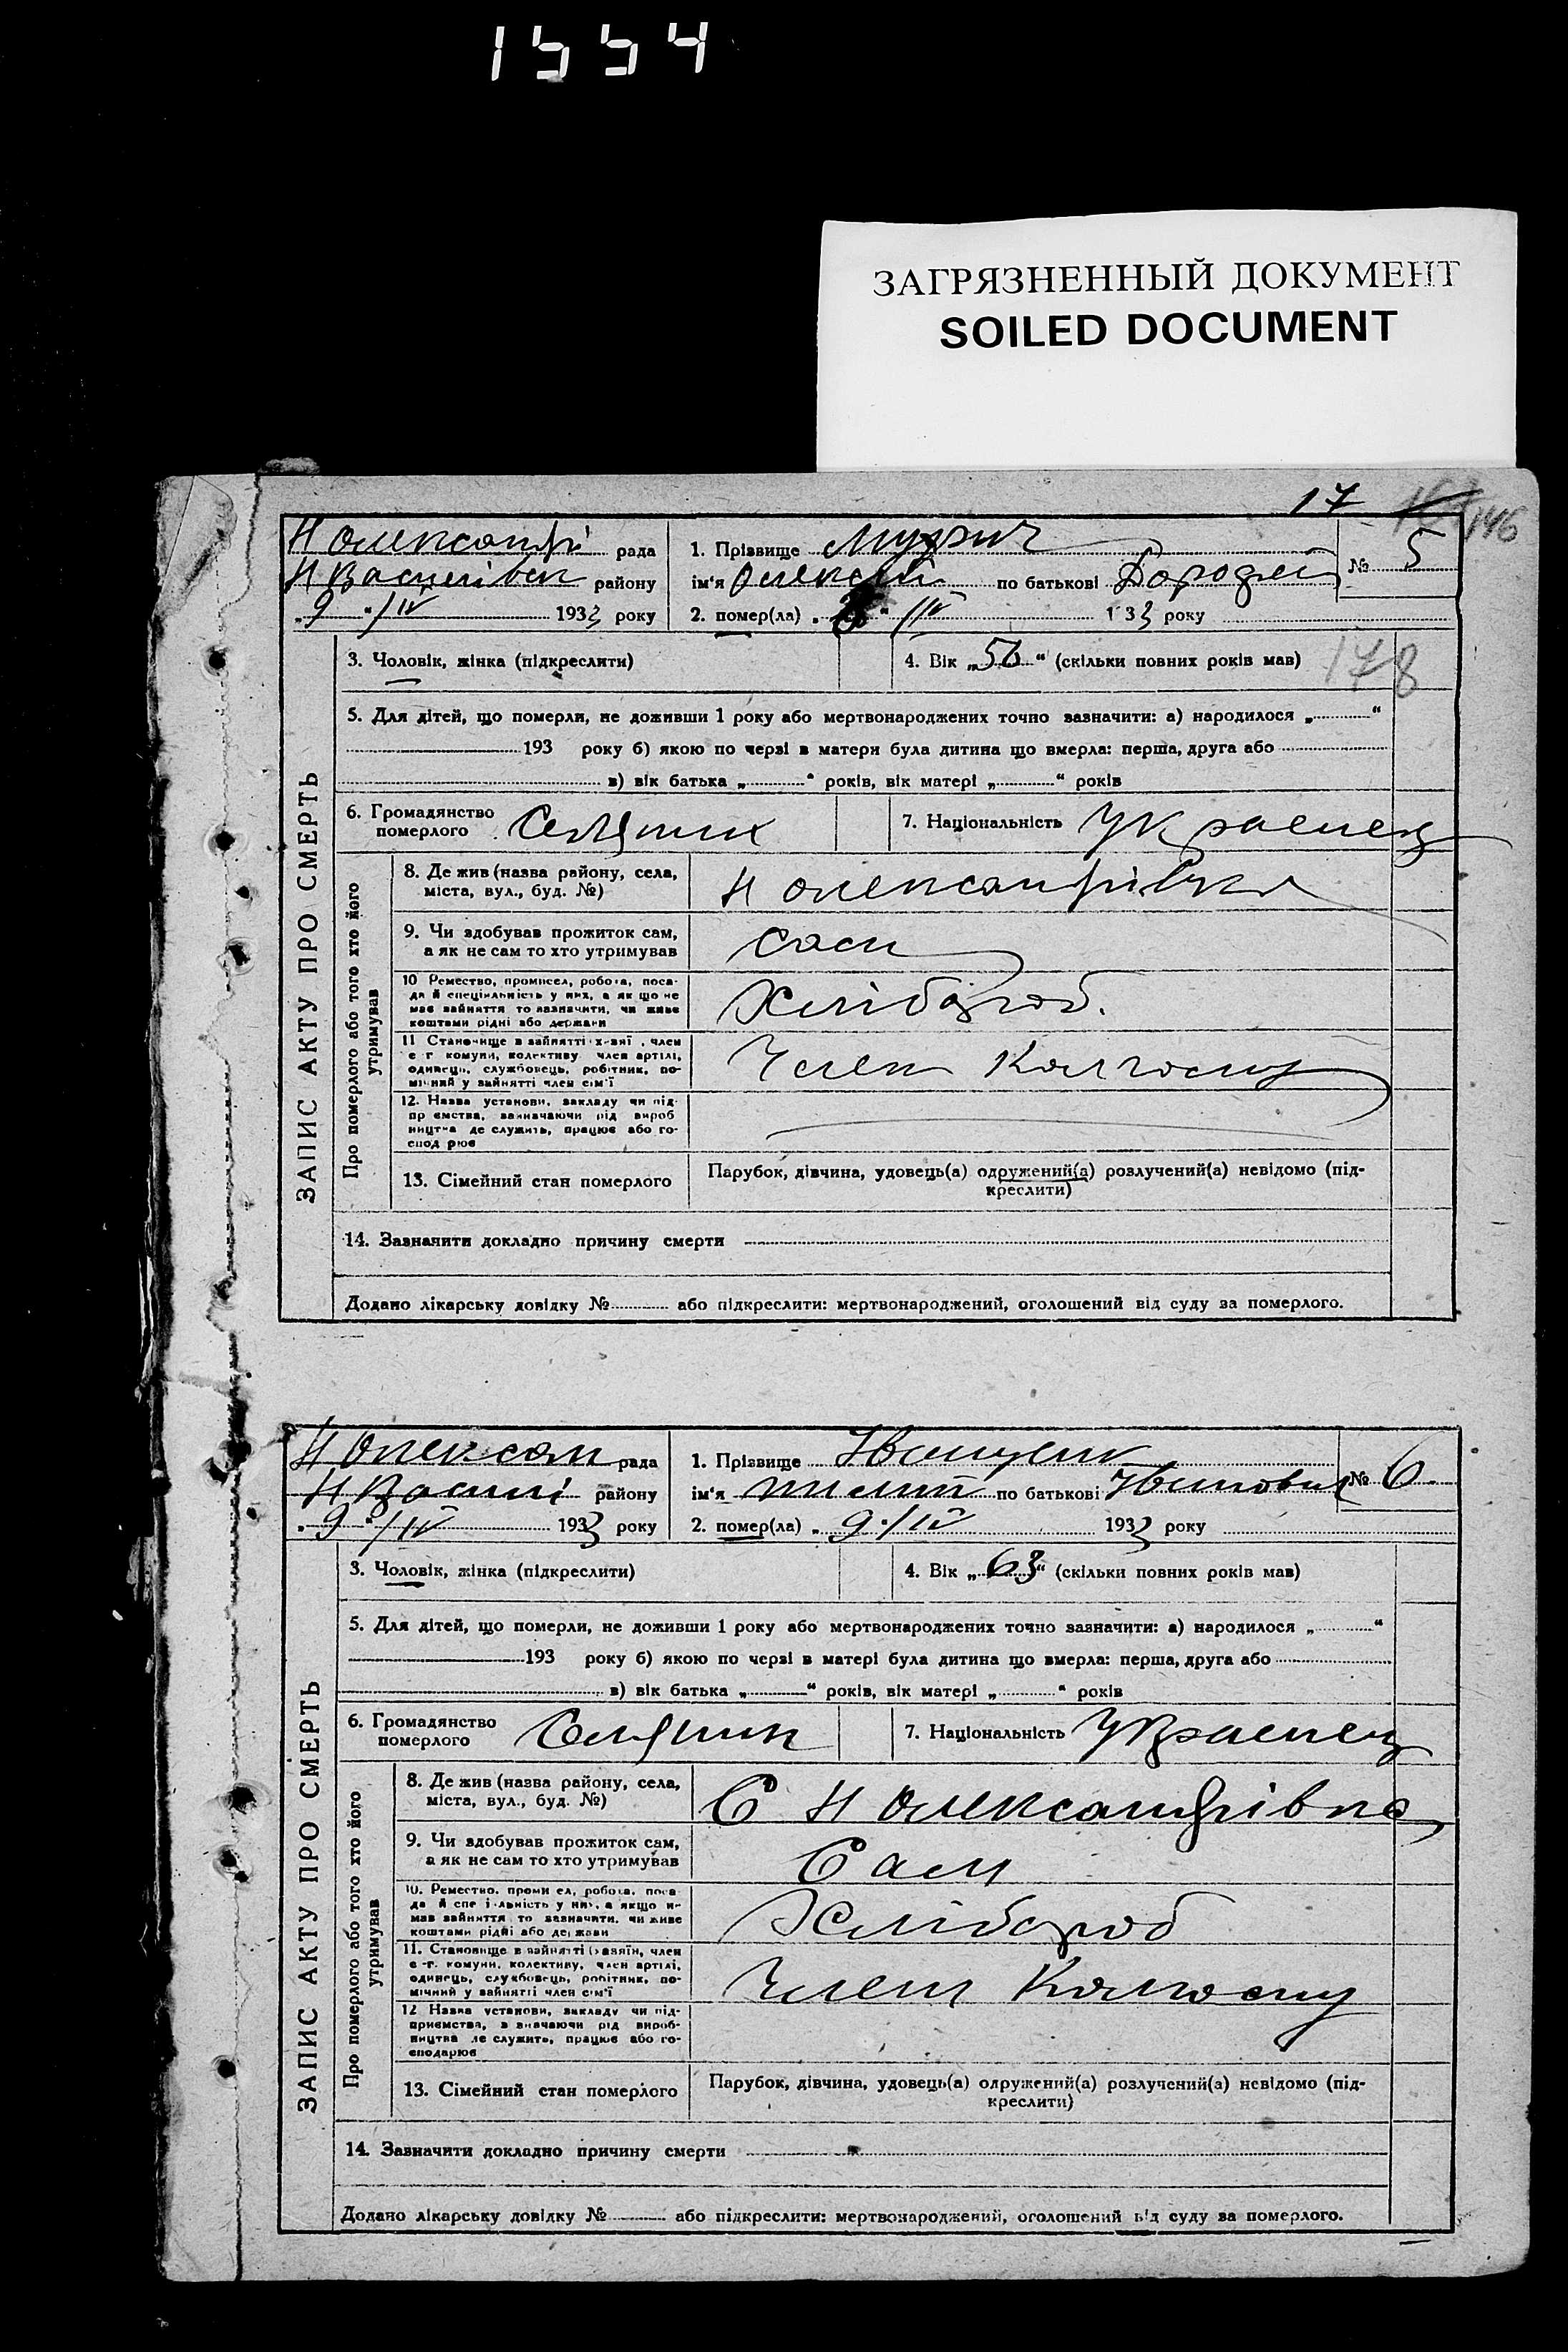 1554
ЗАГРЯЗНЕННЫЙ ДОКУМЕНТ
SOILED DOCUMENT
17 146
ЗАПИС АКТУ ПРО СМЕРТЬ
Н Олександрі рада
Н Василівск району
„9“/IV 1933 року
1. Прізвище
ім'я Олексій по батькові
№ 5
2. помер(ла) „ “/IV 1933 року
3. Чоловік, жінка (підкреслити)
4. Вік „56“ (скільки повних років мав)
178
5. Для дітей, що померли, не доживши 1 року або мертвонароджених точно зазначити: а) народилося „ “
193 року б) якою по черзі в матери була дитина що вмерла: перша, друга або
в) вік батька „ “ років, вік матері „ “ років
6. Громадянство
померлого Селянин
7. Національність Украенец
Про померлого або того хто його
утримував
8. Де жив (назва району, села,
міста, вул., буд. №)
Н Олександрівка
9. Чи здобував прожиток сам,
а як не сам то хто утримував
Сам
10 Ремество, промисел, робота, поса-
да й спеціальність у них, а як що не
має зайняття то зазначити, чи живе
коштами рідні або держави
Хлібороб.
11 Становище в зайнятті
с-г комуни, колективу член артілі,
одинець, службовець, робітник, по-
мічний у зайнятті член сім'ї
Член Колгоспу
12. Назва установи, закладу чи під-
пр ємства, зазначаючи рід вироб
ництва де служить, працює або го-
спод рює
13. Сімейний стан померлого
Парубок, дівчина, удовець(а) одружений(а) розлучений(а) невідомо (під-
креслити)
14. Зазначити докладно причину смерти
Додано лікарську довідку № або підкреслити: мертвонароджений, оголошений від суду за померлого.
ЗАПИС АКТУ ПРО СМЕРТЬ
Н Олексан рада
Н Василі району
„9“/IV 1933 року
1. Прізвище
ім'я по батькові Иванович
№ 6
2. помер(ла) „9“/IV 1933 року
3. Чоловік, жінка (підкреслити)
4. Вік „63“ (скільки повних років мав)
5. Для дітей, що померли, не доживши 1 року або мертвонароджених точно зазначити: а) народилося „ “
193 року б) якою по черзі в матері була дитина що вмерла: перша, друга або
в) вік батька „ “ років, вік матері „ “ років
6. Громадянство
померлого Селянин
7. Національність Украенец
Про померлого або того хто його
утримував
8. Де жив (назва району, села,
міста, вул., буд. №)
С Н Олександрівка
9. Чи здобував прожиток сам,
а як не сам то хто утримував
Сам
10. Ремество, проми ел, робота, поса
да й спе і льність у них, а якщо н-
має зайняття то зазначити, чи живе
коштами рідні або держави
Хлібороб
11. Становище в зайнятті (хазяїн, член
с-г. комуни, колективу, член артілі,
одинець, службовець, робітник, по-
мічний у зайнятті член сім'ї
Член Колгоспу
12 Назва установи, закладу чи під-
приємства, зазначаючи рід вироб-
ництва де служить, працює або го-
сподарює
13. Сімейний стан померлого
Парубок, дівчина, удовець(а) одружений(а) розлучений(а) невідомо (під-
креслити)
14. Зазначити докладно причину смерти
Додано лікарську довідку № або підкреслити: мертвонароджений, оголошений від суду за померлого.